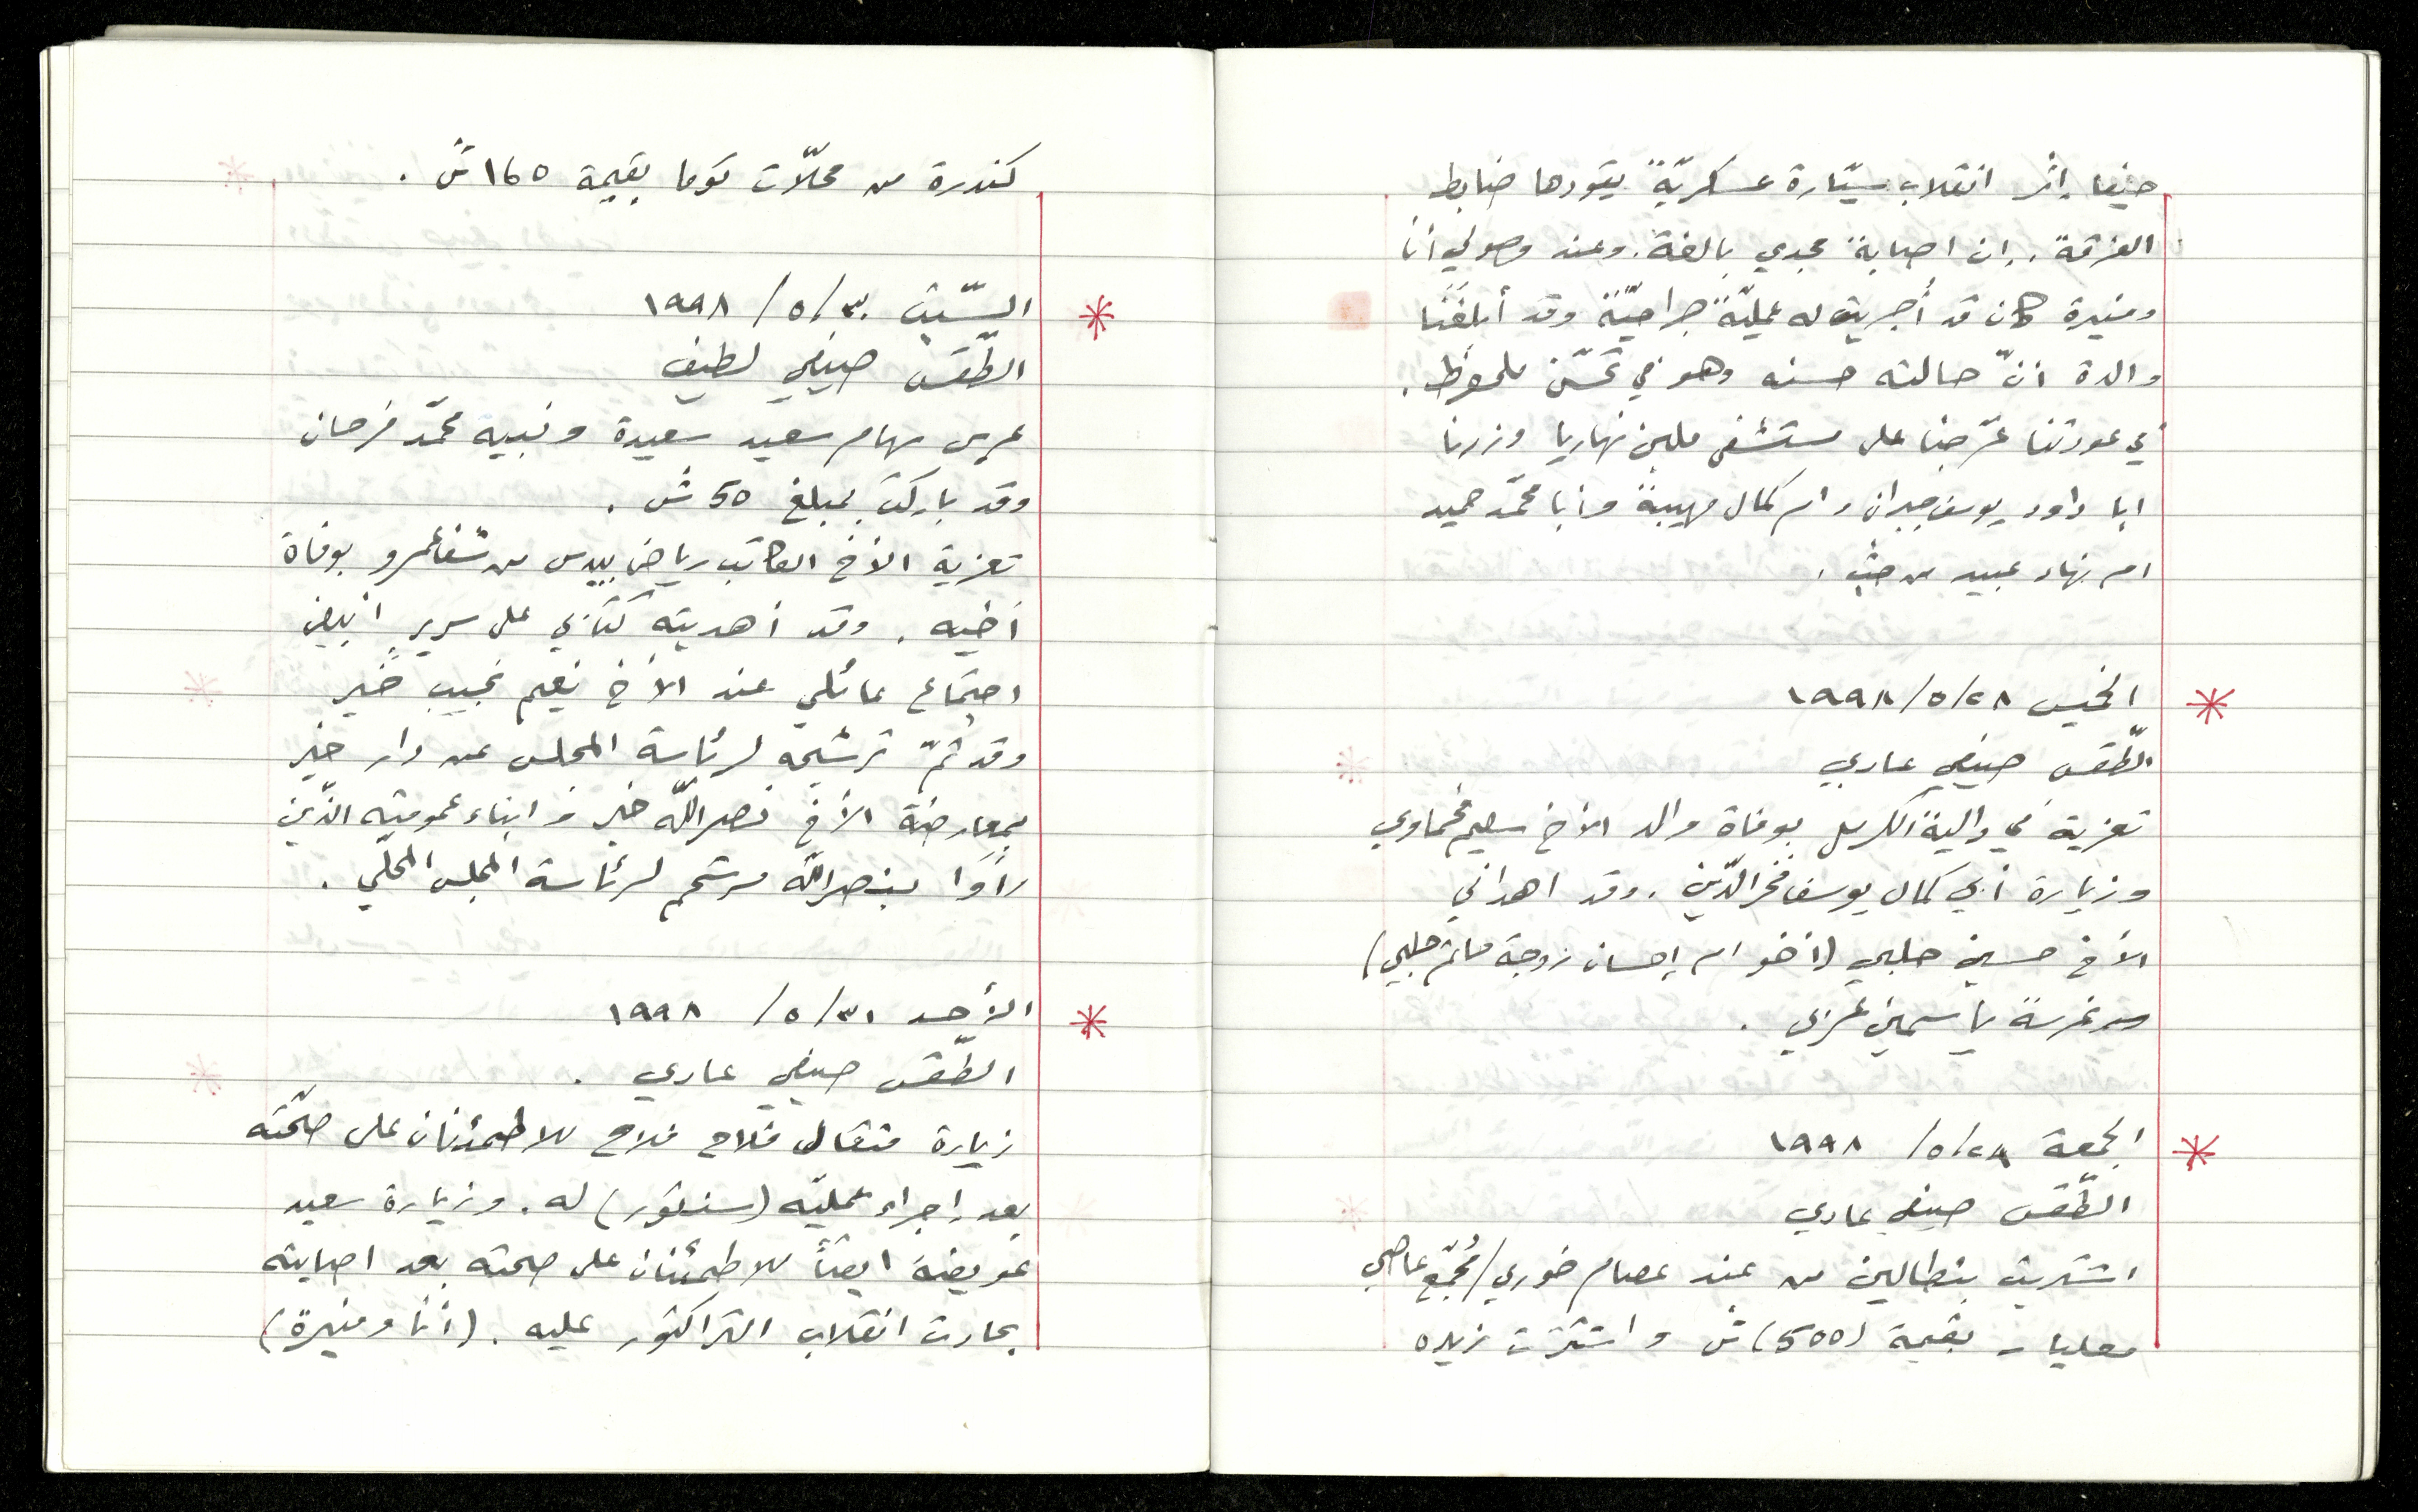 حيفا إثر انقلاب سيّارة عسكريّة يقودها ضابط
الفرقة. إن اصابة مجدي بالغة. وعند وصولي أنا
ومنيرة كان قد أُجريت له عمليّة جراحيّة وقد أبلغَنا
والدة أنّ حالته حسنه وهو في تحسّن ملحوظ.
في عودتنا عرّجنا على مستشفى نهاريا وزرنا
ابا داود يوسف جبران وام كمال مهيبة وأبا محمّد حميد
ام نهاد عبيد من جثّ.
* الخميس ٢٨/٥/١٩٩٨
الطّقس صيفي عادي
تعزية في دالية الكرمل بوفاة والد الأخ سليم فحماوي
وزيارة أبي كمال يوسف فخرالدّين. وقد اهداني
الأخ حسين حلبي (أخو ام إحسان زوجة حاتم حلبي)
غرسة ياسمين عربي.
* الجمعة ٢٩/٥/ ١٩٩٨
الطّقس صيفي عادي
اشتريت بنطالين من عند عصام خوري/مُجمّع عاصي
معليا – بقيمة (500) ش واشترت نزيهه
كندرة من محلّات توما بقيمة ١٦٥ ش.
* السّبت ٣٠/٥/ ١٩٩٨
الطّقس صيفي لطيف
عرس سهام سعيد سعيدة ونبيه محمّد فرحان
وقد باركت بمبلغ 50 ش.
تعزية الأخ الكاتب رياض بيدس من شفاعمرو بوفاة
أخيه. وقد أهديته كتابي على سريرٍ أبيض
اجتماع عائلي عند الأخ نعيم نجيب خير
وقد تمّ ترشيحه لرئاسة المجلس عن دار خير
بمعارضة الأخ نصرالله خير وابناء عمومته الذّين
رأَوا بنصرالله مرشّحهم لرئاسة المجلس المحلّي.
* الأحد ٣١/٥/ ١٩٩٨
الطّقس صيفي عادي.
زيارة مثقال فلاح فلاح للاطمئنان على صحّته
بعد إجراء عمليّه (سنتور) له. وزيارة سعيد
عويضة ايضاً للاطمئنان على صحته بعد اصابته
بحادث انقلاب التراكتور عليه. (أنا ومنيرة)